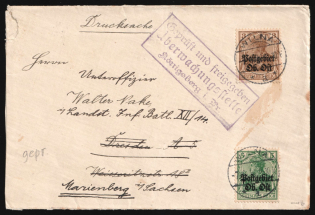 Drucksache
Geprüft und freigegeben
Überwachungsstelle
Königsberg i. Pr.
Postgebiet
Ob. Ost
Herrn
Unteroffizier
Walter Nake
Landst. Inf. Batl. XII/14.
Dresden A 5
gepr.
Marienberg i/Sachsen
Postgebiet
Ob. Ost